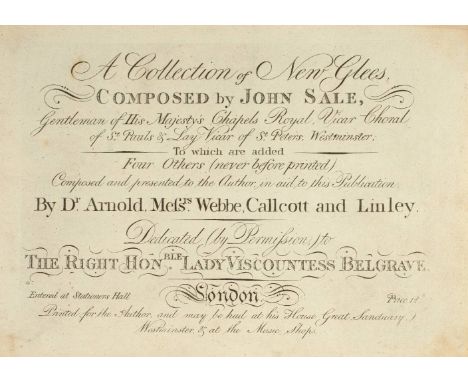 A Collection of New Glees,
COMPOSED by JOHN SALE,
Gentleman of His Majesty's Chapels Royal, Vicar Choral
of St. Pauls & Lay Vicar of St. Peters, Westminster.
To which are added
Four Others (never before printed)
Composed and presented to the Author, in aid, to this Publication
By Dr. Arnold, Messrs. Webbe, Callcott and Linley.
Dedicated (by Permission) to
THE RIGHT HONBLE LADY VISCOUNTESS BELGRAVE.
Entered at Stationers Hall
London
Price
Printed for the Author, and may be had at his House, Great Sanctuary,
Westminster, & at the Music Shops.